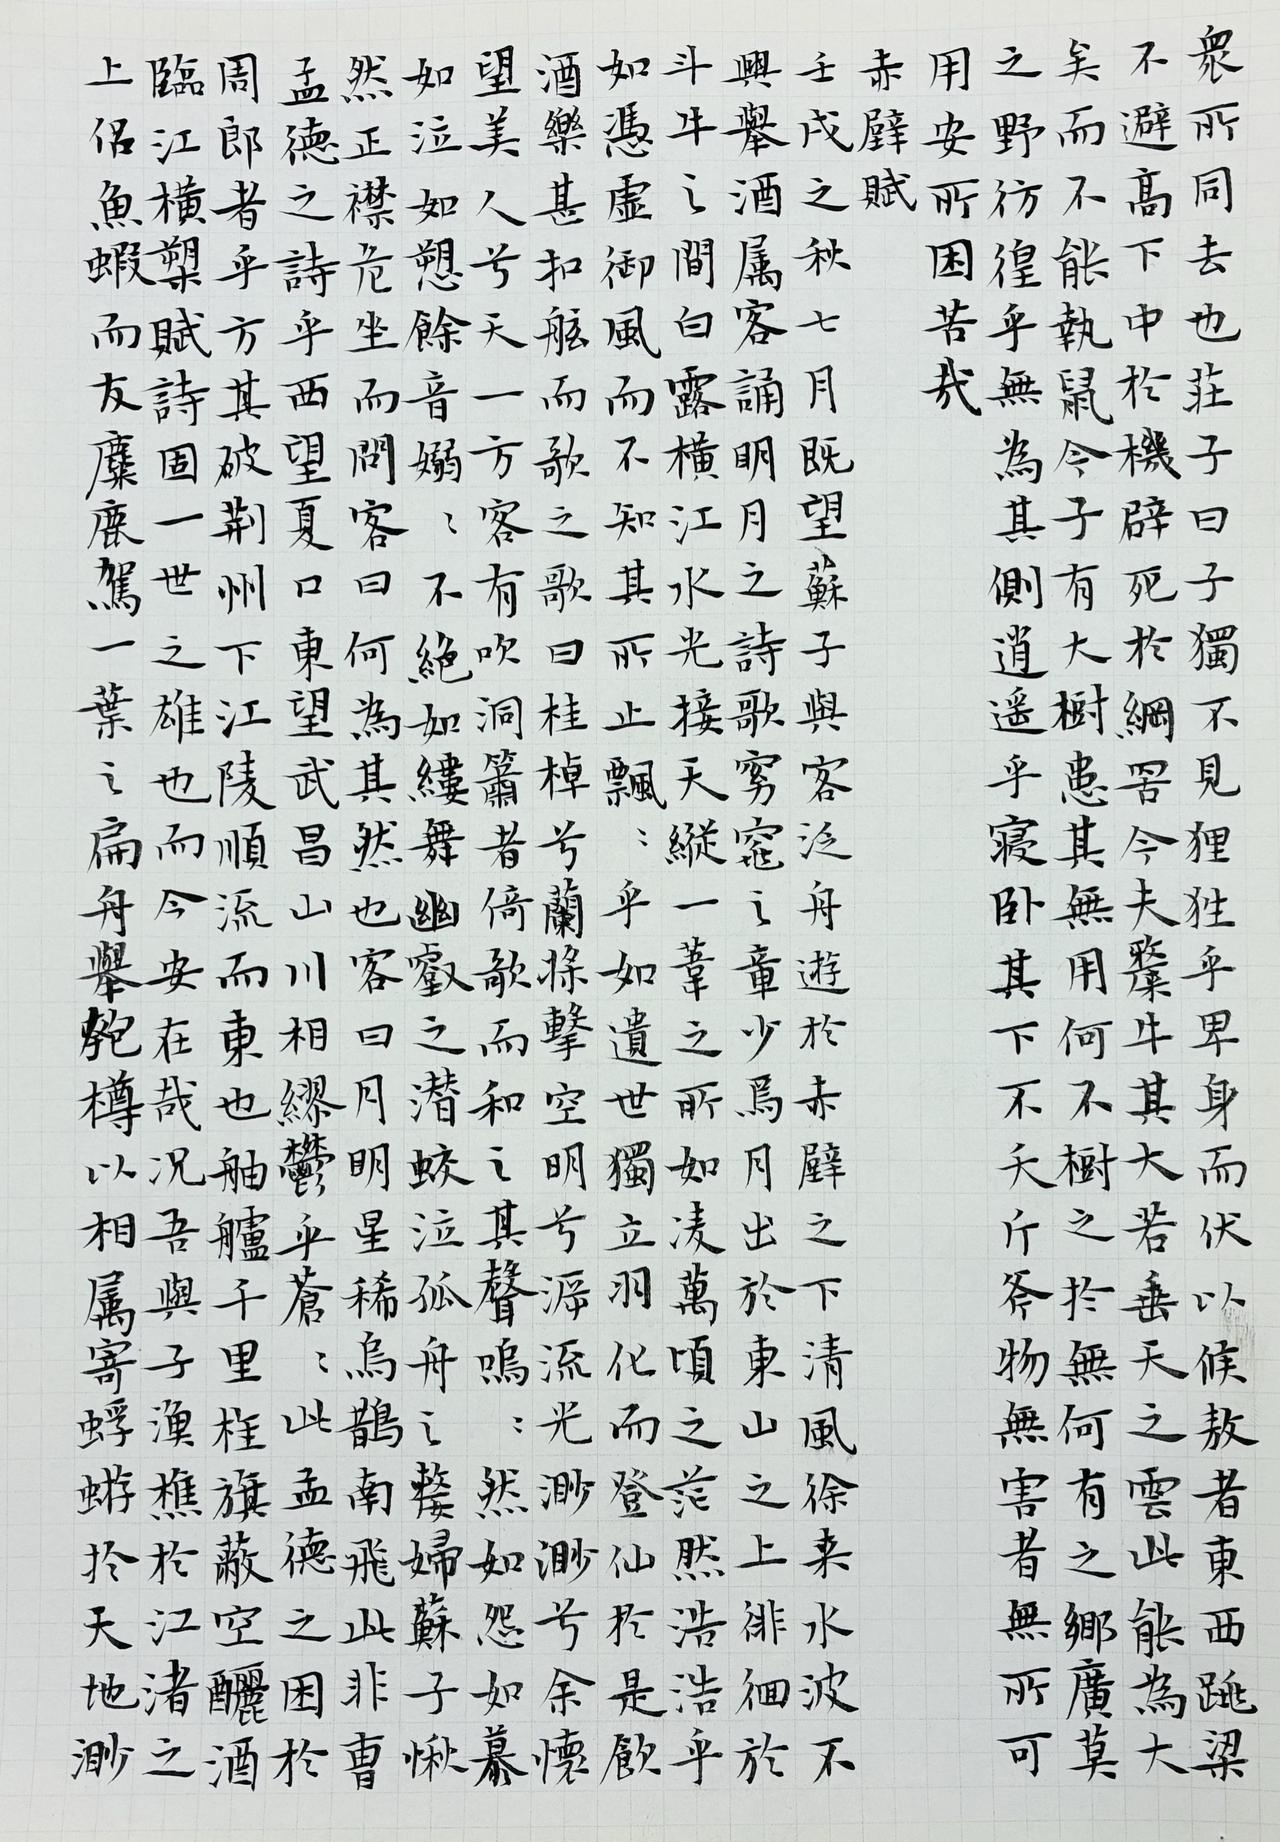 衆所同去也莊子曰子獨不見狸狌乎卑身而伏以候敖者東西跳梁
不避高下中於機辟死於網罟今夫斄牛其大若垂天之雲此能為大
矣而不能執鼠今子有大樹患其無用何不樹之於無何有之鄉廣莫
之野彷徨乎無為其側逍遥乎寢卧其下不夭斤斧物無害者無所可
用安所困苦哉
赤壁賦
壬戌之秋七月既望蘇子與客泛舟遊於赤壁之下清風徐来水波不
興舉酒属客誦明月之詩歌窈窕之章少焉月出於東山之上徘徊於
斗牛之間白露横江水光接天縱一葦之所如凌萬頃之茫然浩浩乎
如馮虛御風而不知其所止飄〻乎如遺世獨立羽化而登仙於是飲
酒樂甚扣舷而歌之歌曰桂棹兮蘭槳擊空明兮泝流光渺渺兮余懷
望美人兮天一方客有吹洞簫者倚歌而和之其聲嗚〻然如怨如慕
如泣如愬餘音嫋〻不絕如縷舞幽壑之潜蛟泣孤舟之嫠婦蘇子愀
然正襟危坐而問客曰何為其然也客曰月明星稀烏鵲南飛此非曹
孟德之詩乎西望夏口東望武昌山川相繆鬱乎蒼〻此孟德之困於
周郎者乎方其破荆州下江陵順流而東也舳艫千里旌旗蔽空釃酒
臨江横槊賦詩固一世之雄也而今安在哉况吾與子漁樵於江渚之
上侣魚蝦而友麋鹿駕一葉之扁舟舉匏樽以相属寄蜉蝣於天地渺